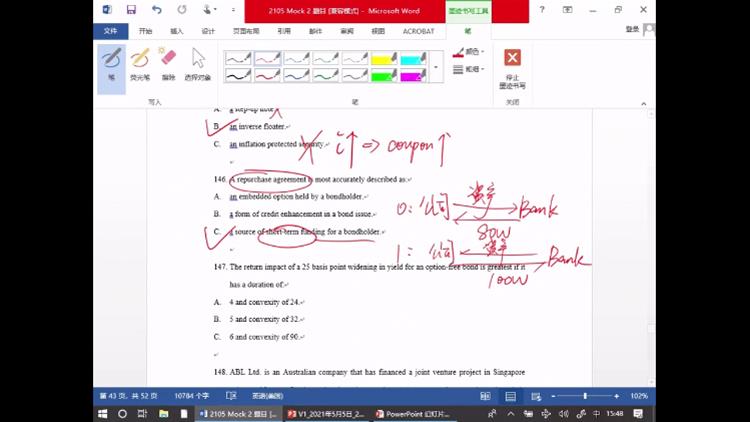 2105 Mock 2 题目 [兼容模式] - Microsoft Word
墨迹书写工具
登录
文件 开始 插入 设计 页面布局 引用 邮件 审阅 视图 ACROBAT 笔
笔 荧光笔 擦除 选择对象
颜色
粗细
停止
墨迹书写
写入 笔 关闭
A. a step-up note.
B. an inverse floater.
C. an inflation protected security.
i↑ => coupon↑
146. A repurchase agreement is most accurately described as:
A. an embedded option held by a bondholder.
B. a form of credit enhancement in a bond issue.
C. a source of short-term funding for a bondholder.
0: 公司 资产 Bank
80W
1: 公司 资产 Bank
100W
147. The return impact of a 25 basis point widening in yield for an option-free bond is greatest if it
has a duration of:
A. 4 and convexity of 24.
B. 5 and convexity of 32.
C. 6 and convexity of 90.
148. ABL Ltd. is an Australian company that has financed a joint venture project in Singapore
第 43 页，共 52 页 10784 个字 英语(美国) 102%
2105 Mock 2 题目 [... V1_2021年5月5日_2... PowerPoint 幻灯片... 中 15:48